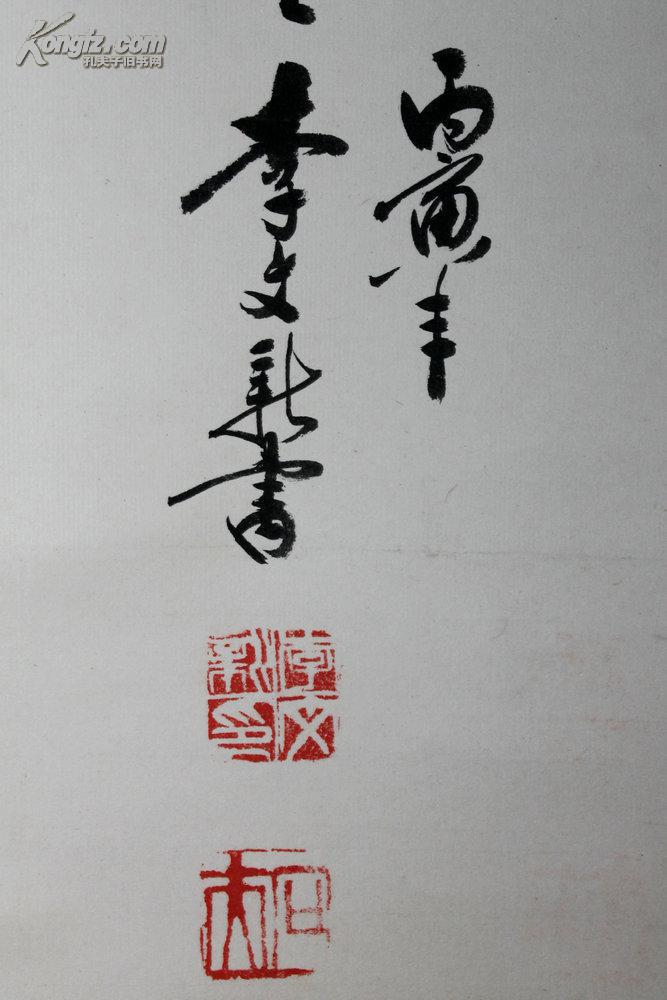 Kongfz.com
孔夫子旧书网
丙寅年
李文新书
李文
新印